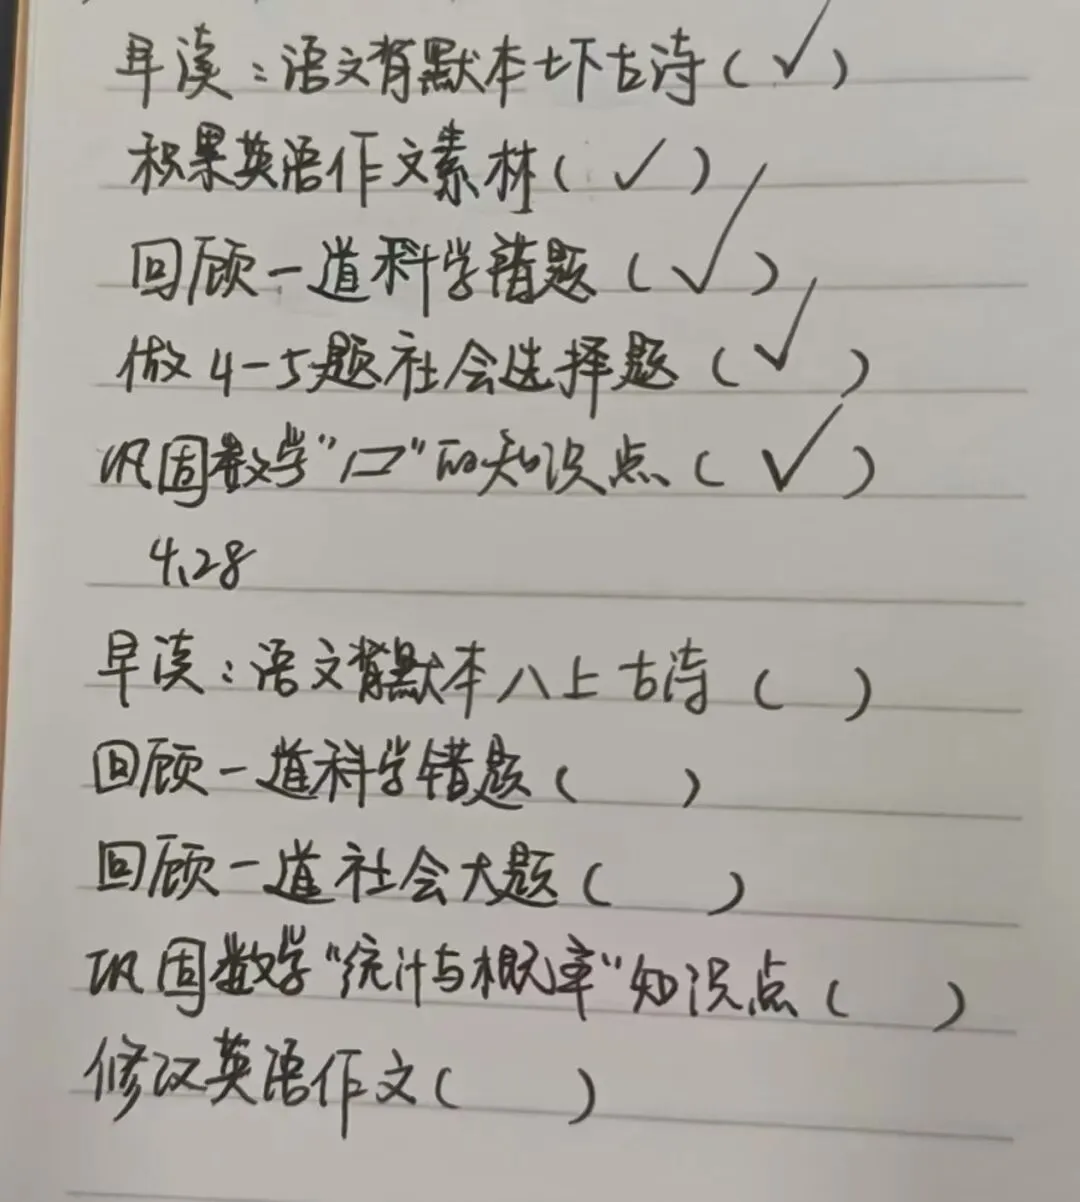 早读:语文背默本七下古诗(✓)
积累英语作文素材(✓)
回顾一道科学错题(✓)
做4-5题社会选择题(✓)
巩固数学"▱"的知识点(✓)
4.28
早读:语文背默本八上古诗( )
回顾一道科学错题( )
回顾一道社会大题( )
巩固数学"统计与概率"知识点( )
修改英语作文( )